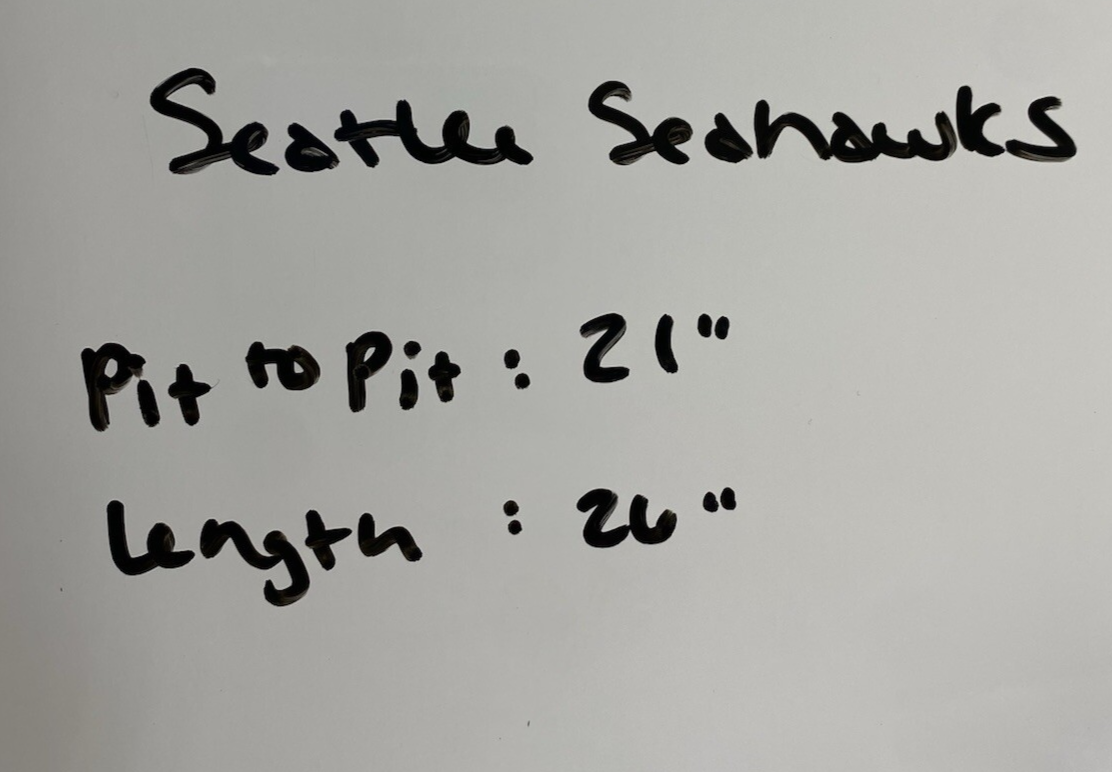 Seattle Seahawks
Pit to Pit : 21"
Length : 26"